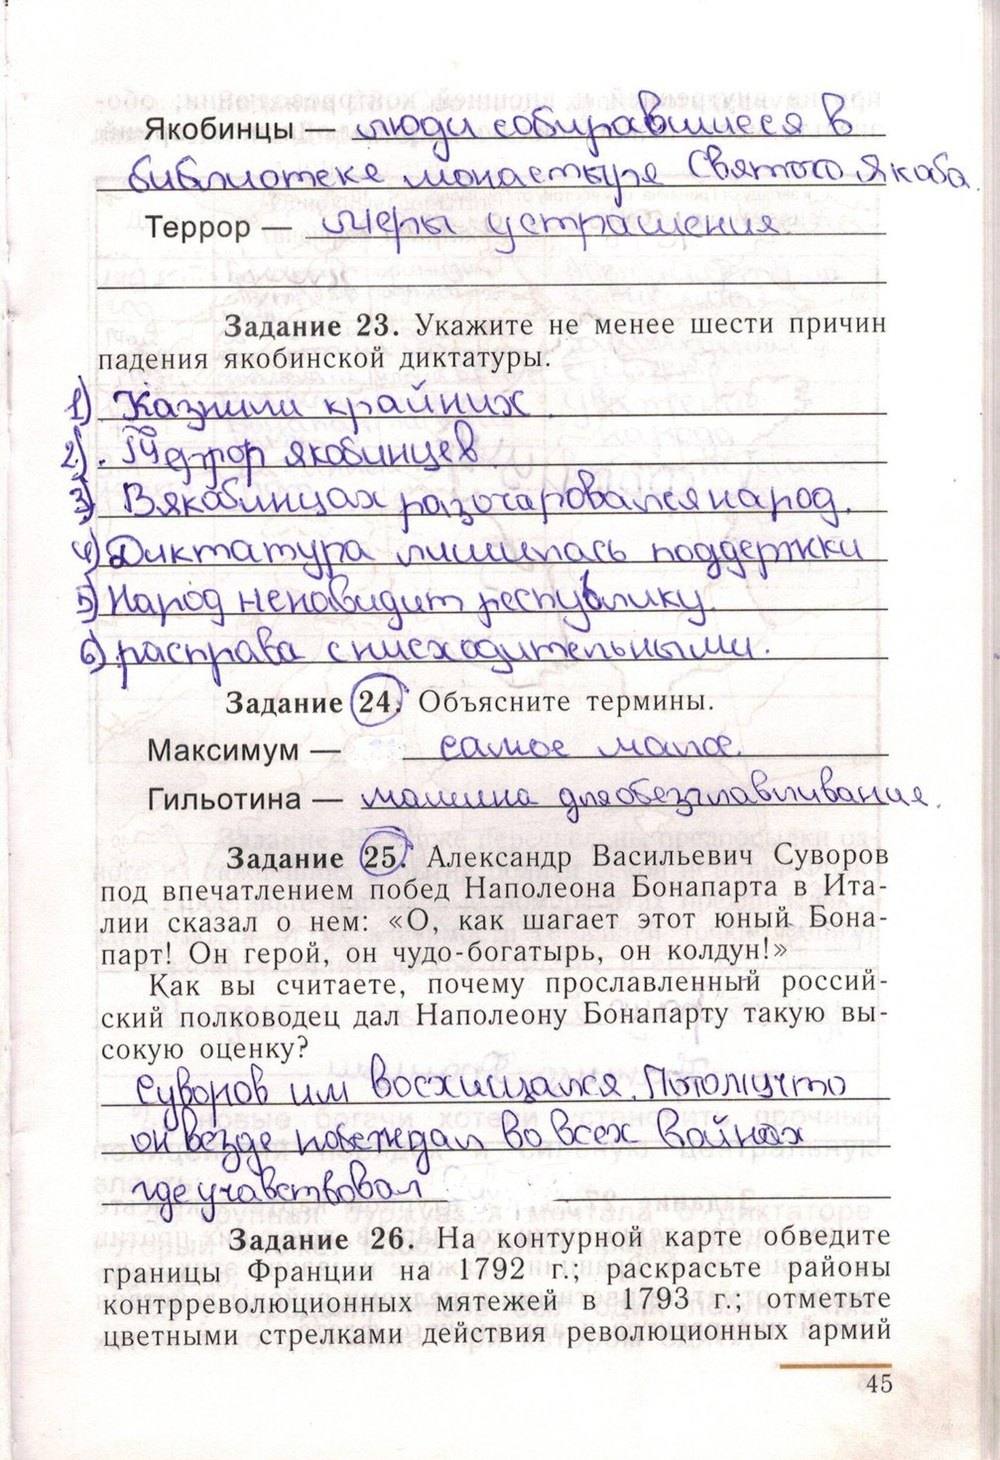 Якобинцы — люди собиравшиеся в
библиотеке монастыря Святого Якоба.
Террор — меры устрашения
Задание 23. Укажите не менее шести причин
падения якобинской диктатуры.
1) Казнили крайних.
2). Террор якобинцев
3) В якобинцах разочаровался народ.
4) Диктатура лишилась поддержки
5) Народ ненавидит республику.
6) расправа с нисходительными.
Задание 24. Объясните термины.
Максимум — самое малое.
Гильотина — машина для обезглавливания.
Задание 25. Александр Васильевич Суворов
под впечатлением побед Наполеона Бонапарта в Ита-
лии сказал о нем: «О, как шагает этот юный Бона-
парт! Он герой, он чудо-богатырь, он колдун!»
Как вы считаете, почему прославленный россий-
ский полководец дал Наполеону Бонапарту такую вы-
сокую оценку?
Суворов им восхищался. Потому что
он везде побеждал во всех войнах
где учавствовал
Задание 26. На контурной карте обведите
границы Франции на 1792 г.; раскрасьте районы
контрреволюционных мятежей в 1793 г.; отметьте
цветными стрелками действия революционных армий
45